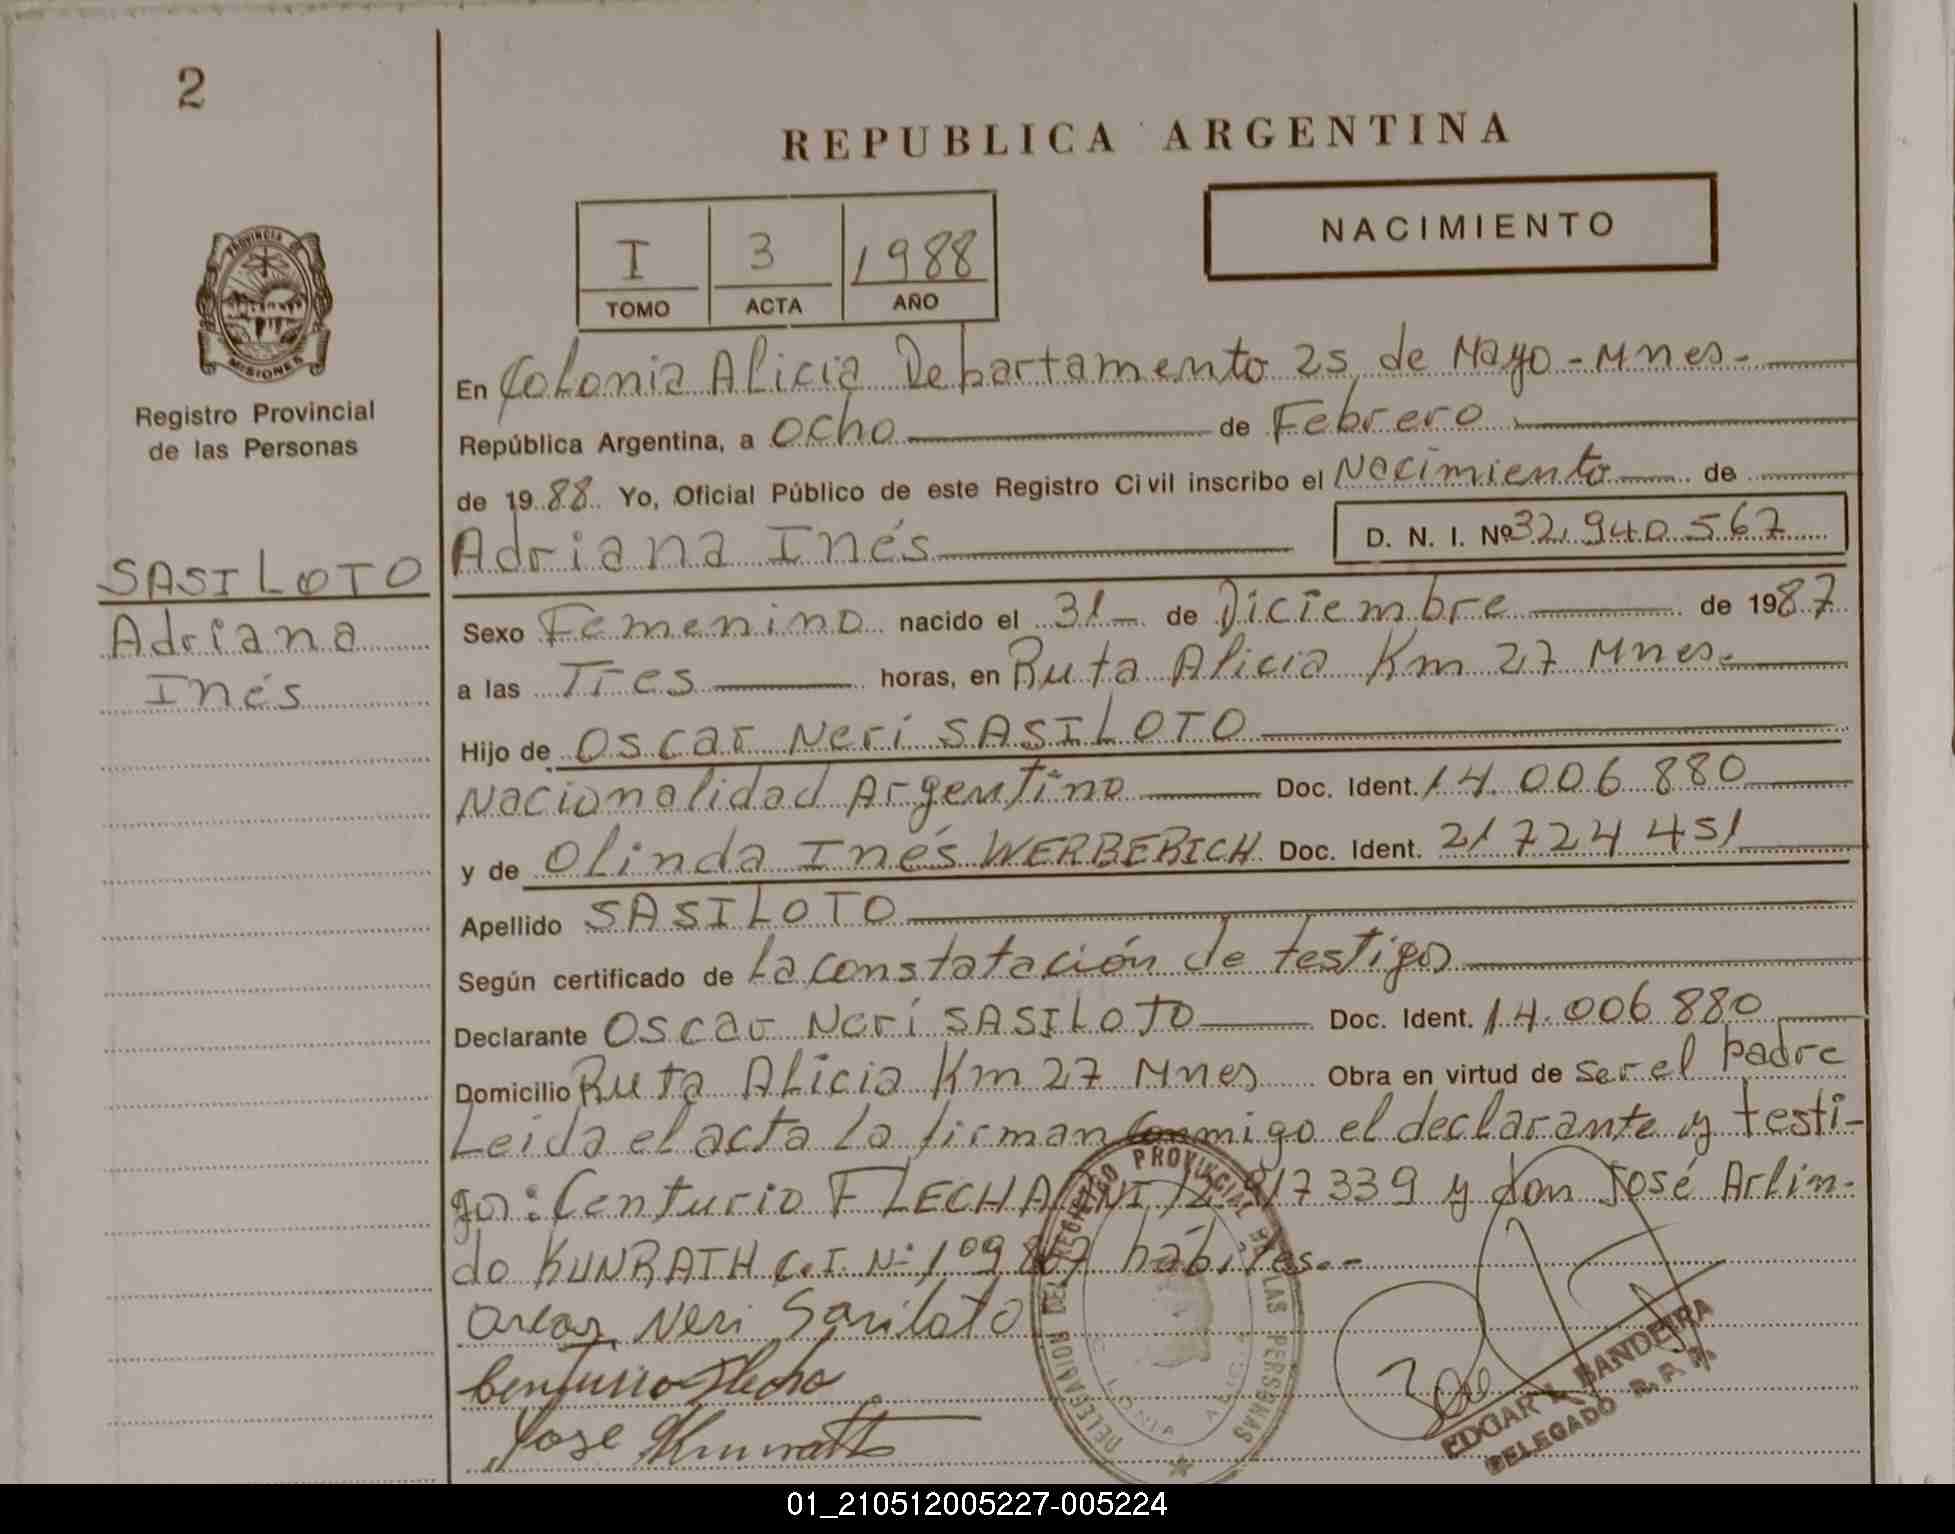 2
REPUBLICA ARGENTINA
NACIMIENTO
I 3 1988
TOMO ACTA AÑO
PROVINCIA DE
MISIONES
Registro Provincial
de las Personas
SASILOTO
Adriana
Inés
En Colonia Alicia Departamento 25 de Mayo - Mnes-
República Argentina, a ocho de Febrero
de 1988 Yo, Oficial Público de este Registro Civil inscribo el Nacimiento de
Adriana Inés D. N. I. Nº 32.940.567
Sexo Femenino nacido el 31 de Diciembre de 1987
a las Tres horas, en Ruta Alicia Km 27 Mnes.
Hijo de Oscar Neri SASILOTO
Nacionalidad Argentino Doc. Ident. 14.006.880
y de Olinda Inés WERBERICH Doc. Ident. 21 724 451
Apellido SASILOTO
Según certificado de La constatación de testigos
Declarante Oscar Neri SASILOTO Doc. Ident. 14.006 880
Domicilio Ruta Alicia Km 27 Mnes Obra en virtud de ser el padre
Leida el acta La firman conmigo el declarante y testi-
gos: Centurio FLECHA 917339 y don José Arlin-
do KUNRATH C.I. Nº 109 hábiles.-
Oscar Neri Sasiloto
Centurio Flecha
Jose Kunrath
DELEGACION DEL REGISTRO PROVINCIAL DE LAS PERSONAS
COLONIA ALICIA
EDGAR L. BANDEIRA
DELEGADO R. P. P.
01_210512005227-005224